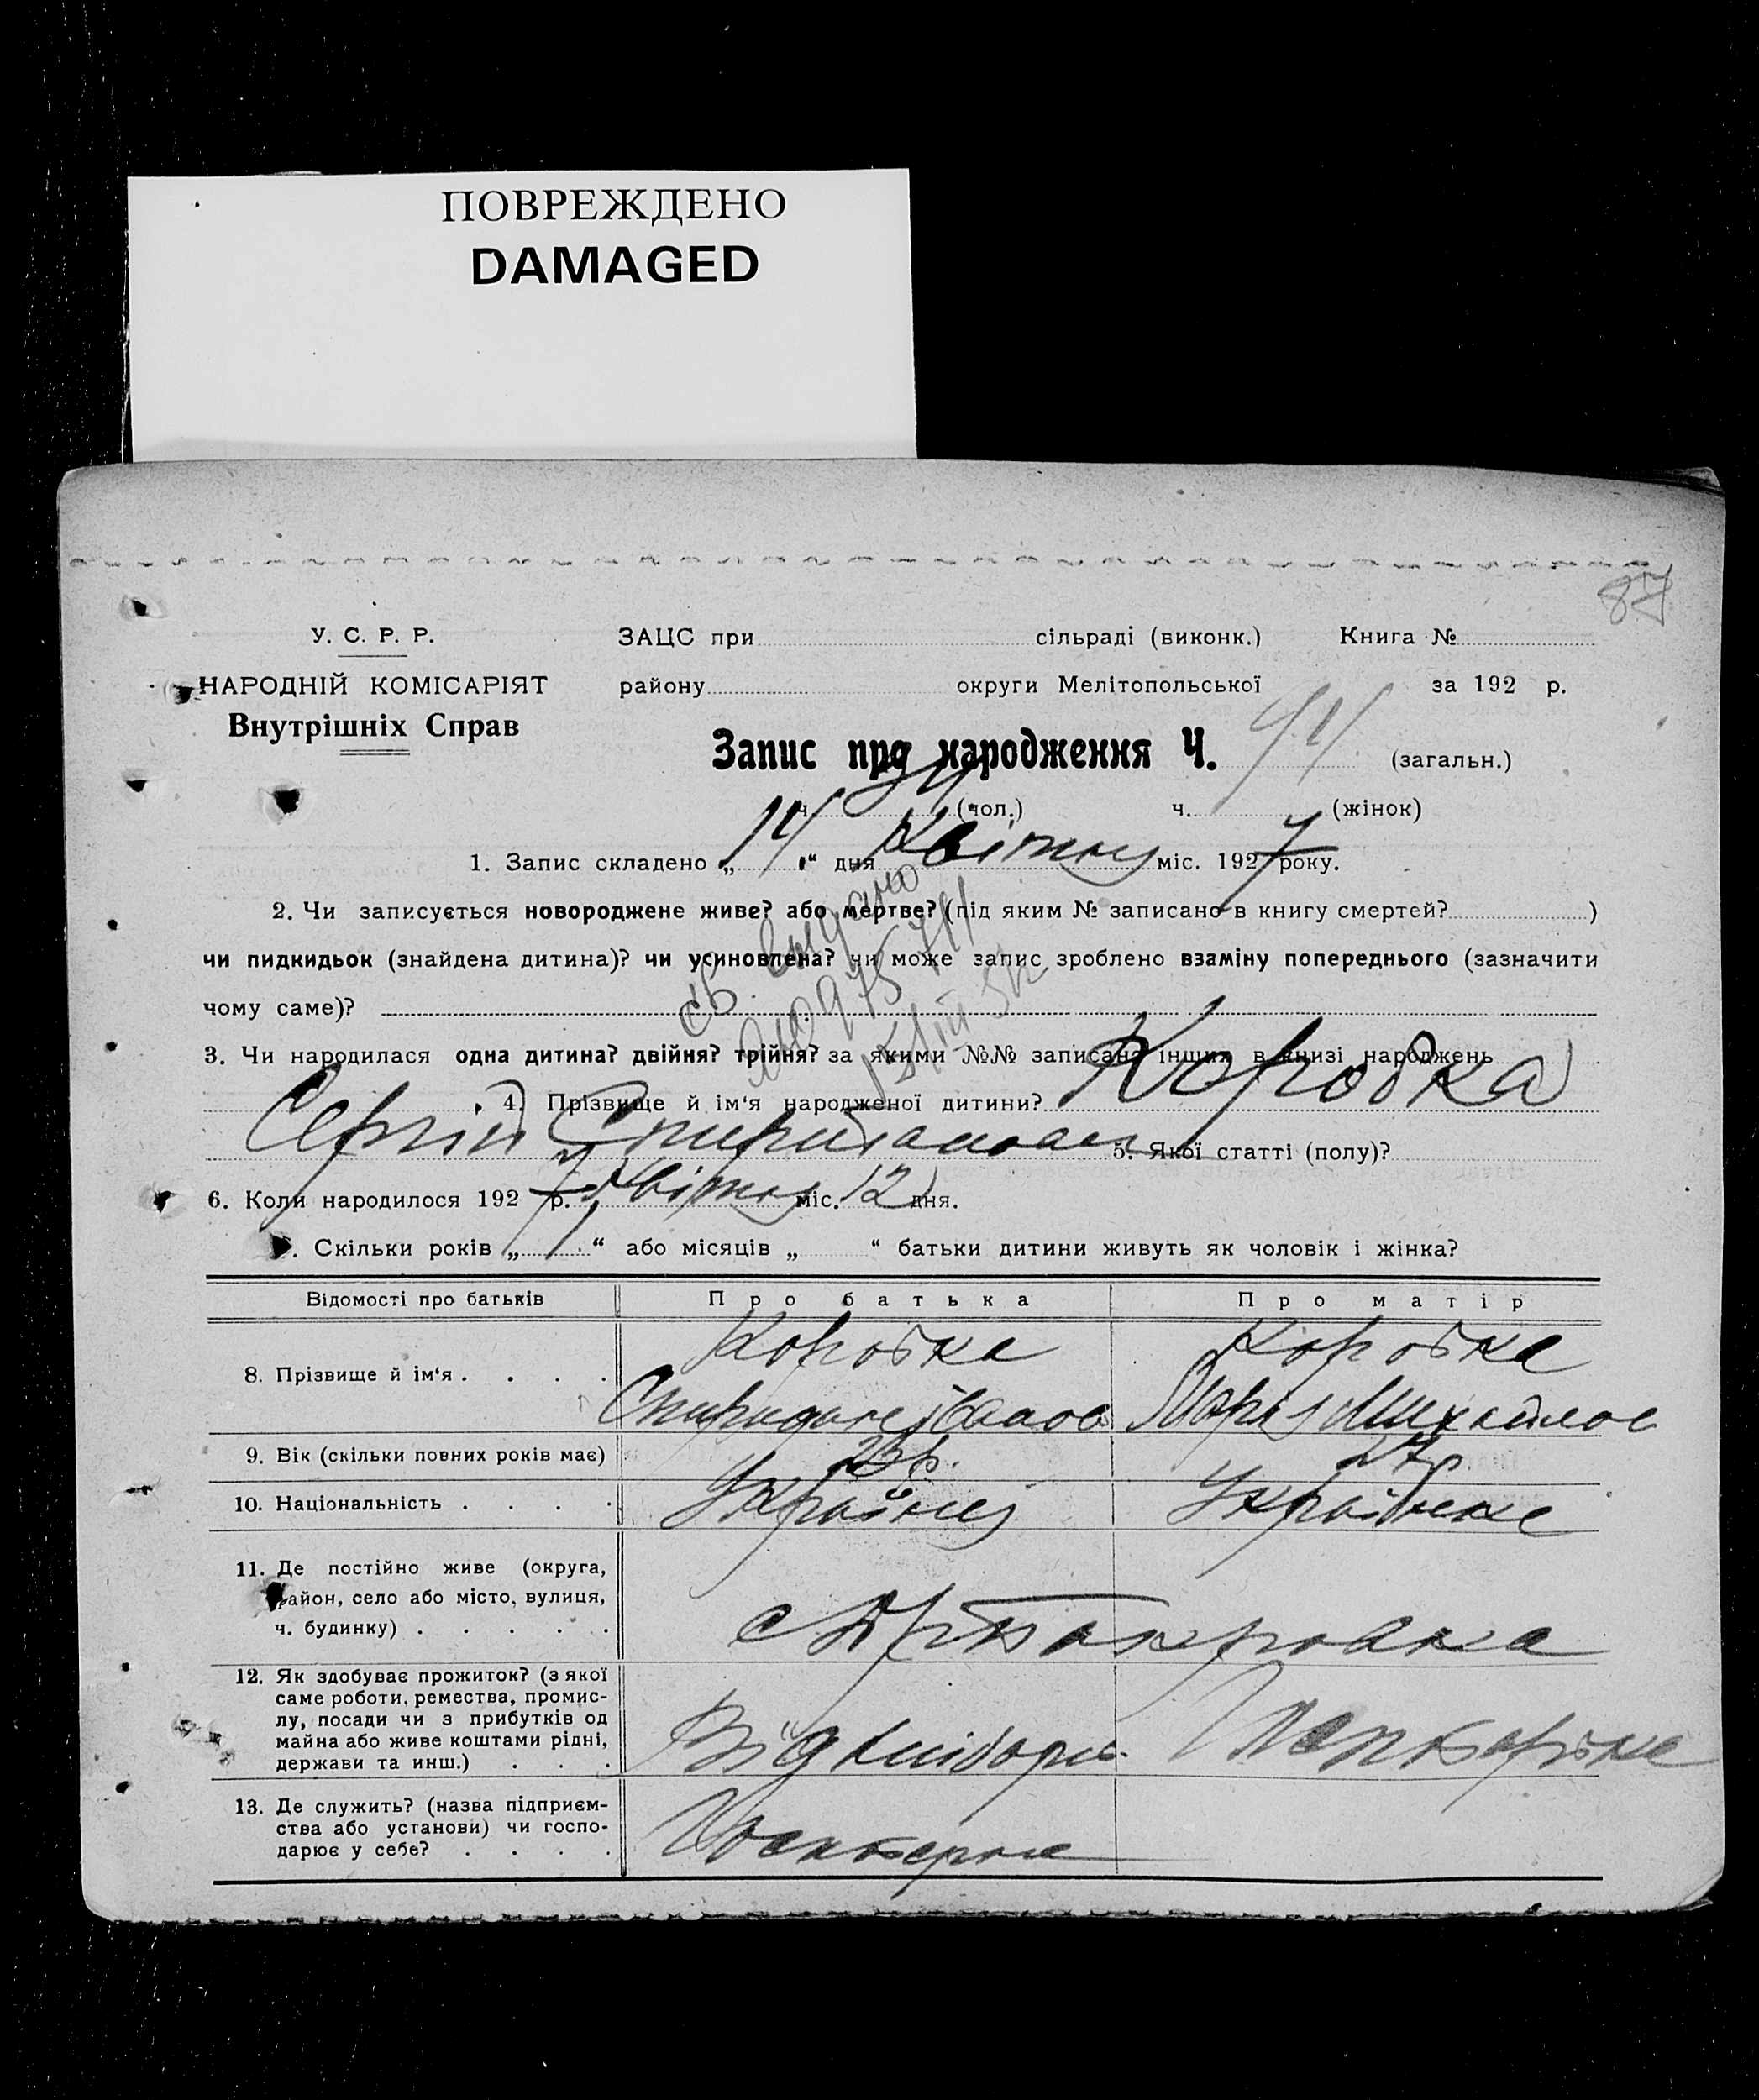 ПОВРЕЖДЕНО
DAMAGED
87
У. С. Р. Р.
ЗАЦС при сільраді (виконк.) Книга №
НАРОДНІЙ КОМІСАРІЯТ
району округи Мелітопольської за 192 р.
Внутрішніх Справ
Запис про народження Ч. (загальн.)
ч. (чол.) ч. (жінок)
1. Запис складено „14“ дня Квітня міс. 1927 року.
2. Чи записується новороджене живе? або мертве? (під яким № записано в книгу смертей? )
чи пидкидьок (знайдена дитина)? чи усиновлена? чи може запис зроблено взаміну попереднього (зазначити
чому саме)?
св. выдано
3. Чи народилася одна дитина? двійня? трійня? за якими №№ записана інших в книзі народжень
4. Прізвище й ім‘я народженої дитини? Коробка
Сергій 5. Якої статті (полу)?
6. Коли народилося 1927 р. Квітня міс. 12 дня.
7. Скільки років „1“ або місяців „ “ батьки дитини живуть як чоловік і жінка?
Відомості про батьків Про батька Про матір
8. Прізвище й ім‘я . . . . Коробка Коробка
Марія
9. Вік (скільки повних років має) 23 р.
10. Національність . . . . Українец Українка
11. Де постійно живе (округа,
район, село або місто, вулиця,
ч. будинку) . . . . .
12. Як здобуває прожиток? (з якої
саме роботи, ремества, промис-
лу, посади чи з прибутків од
майна або живе коштами рідні,
держави та инш.) . . .
13. Де служить? (назва підприєм-
ства або установи) чи госпо-
дарює у себе? . . . .